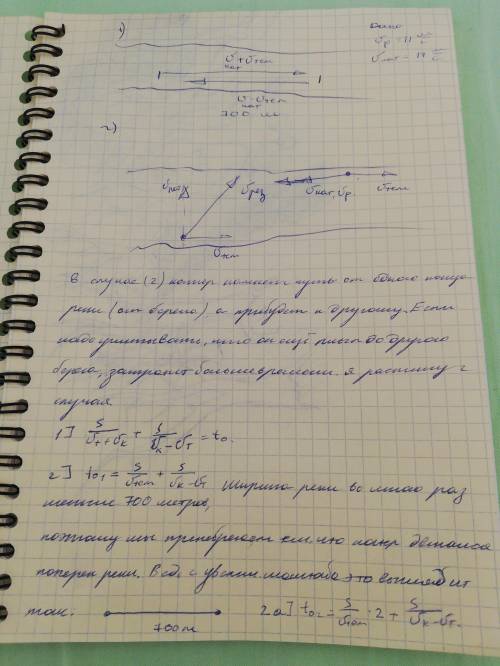 1)
Дано
υр = 11 м/с
υкат = 19 м/с
υкат + υтеч
υкат - υтеч
700 м
2)
υкат
υрез
υкат, υр.
υтеч
υтеч
В случае (2) катер начнет путь от одного конца
реки (от берега), а прибудет к другому. Если
надо учитывать, что он ещё плыл до другого
берега, затратит больше времени. Я распишу 2
случая
1] S/(υт+υк) + S/(υк-υт) = t0.
2] t01 = S/υтеч + S/(υк-υт) Ширина реки во много раз
меньше 700 метров,
поэтому мы пренебрегаем тем, что катер двигался
поперек реки. В ед. с увелич. масштаба это выглядит
так:
700 м
2a] t02 = S/υтеч · 2 + S/(υк-υт).